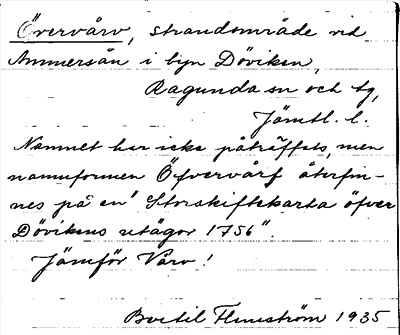 Övervärv, strandområde vid
Ammersån i byn Döviken,
Ragunda sn och tg,
Jämtl. l.
Namnet har icke påträffats, men
namnformen Öfvervärf återfin-
nes på en "Storskifteskarta öfver
Dövikens utägor 1756".
Jämför Värv!
Bertil Flemström 1935